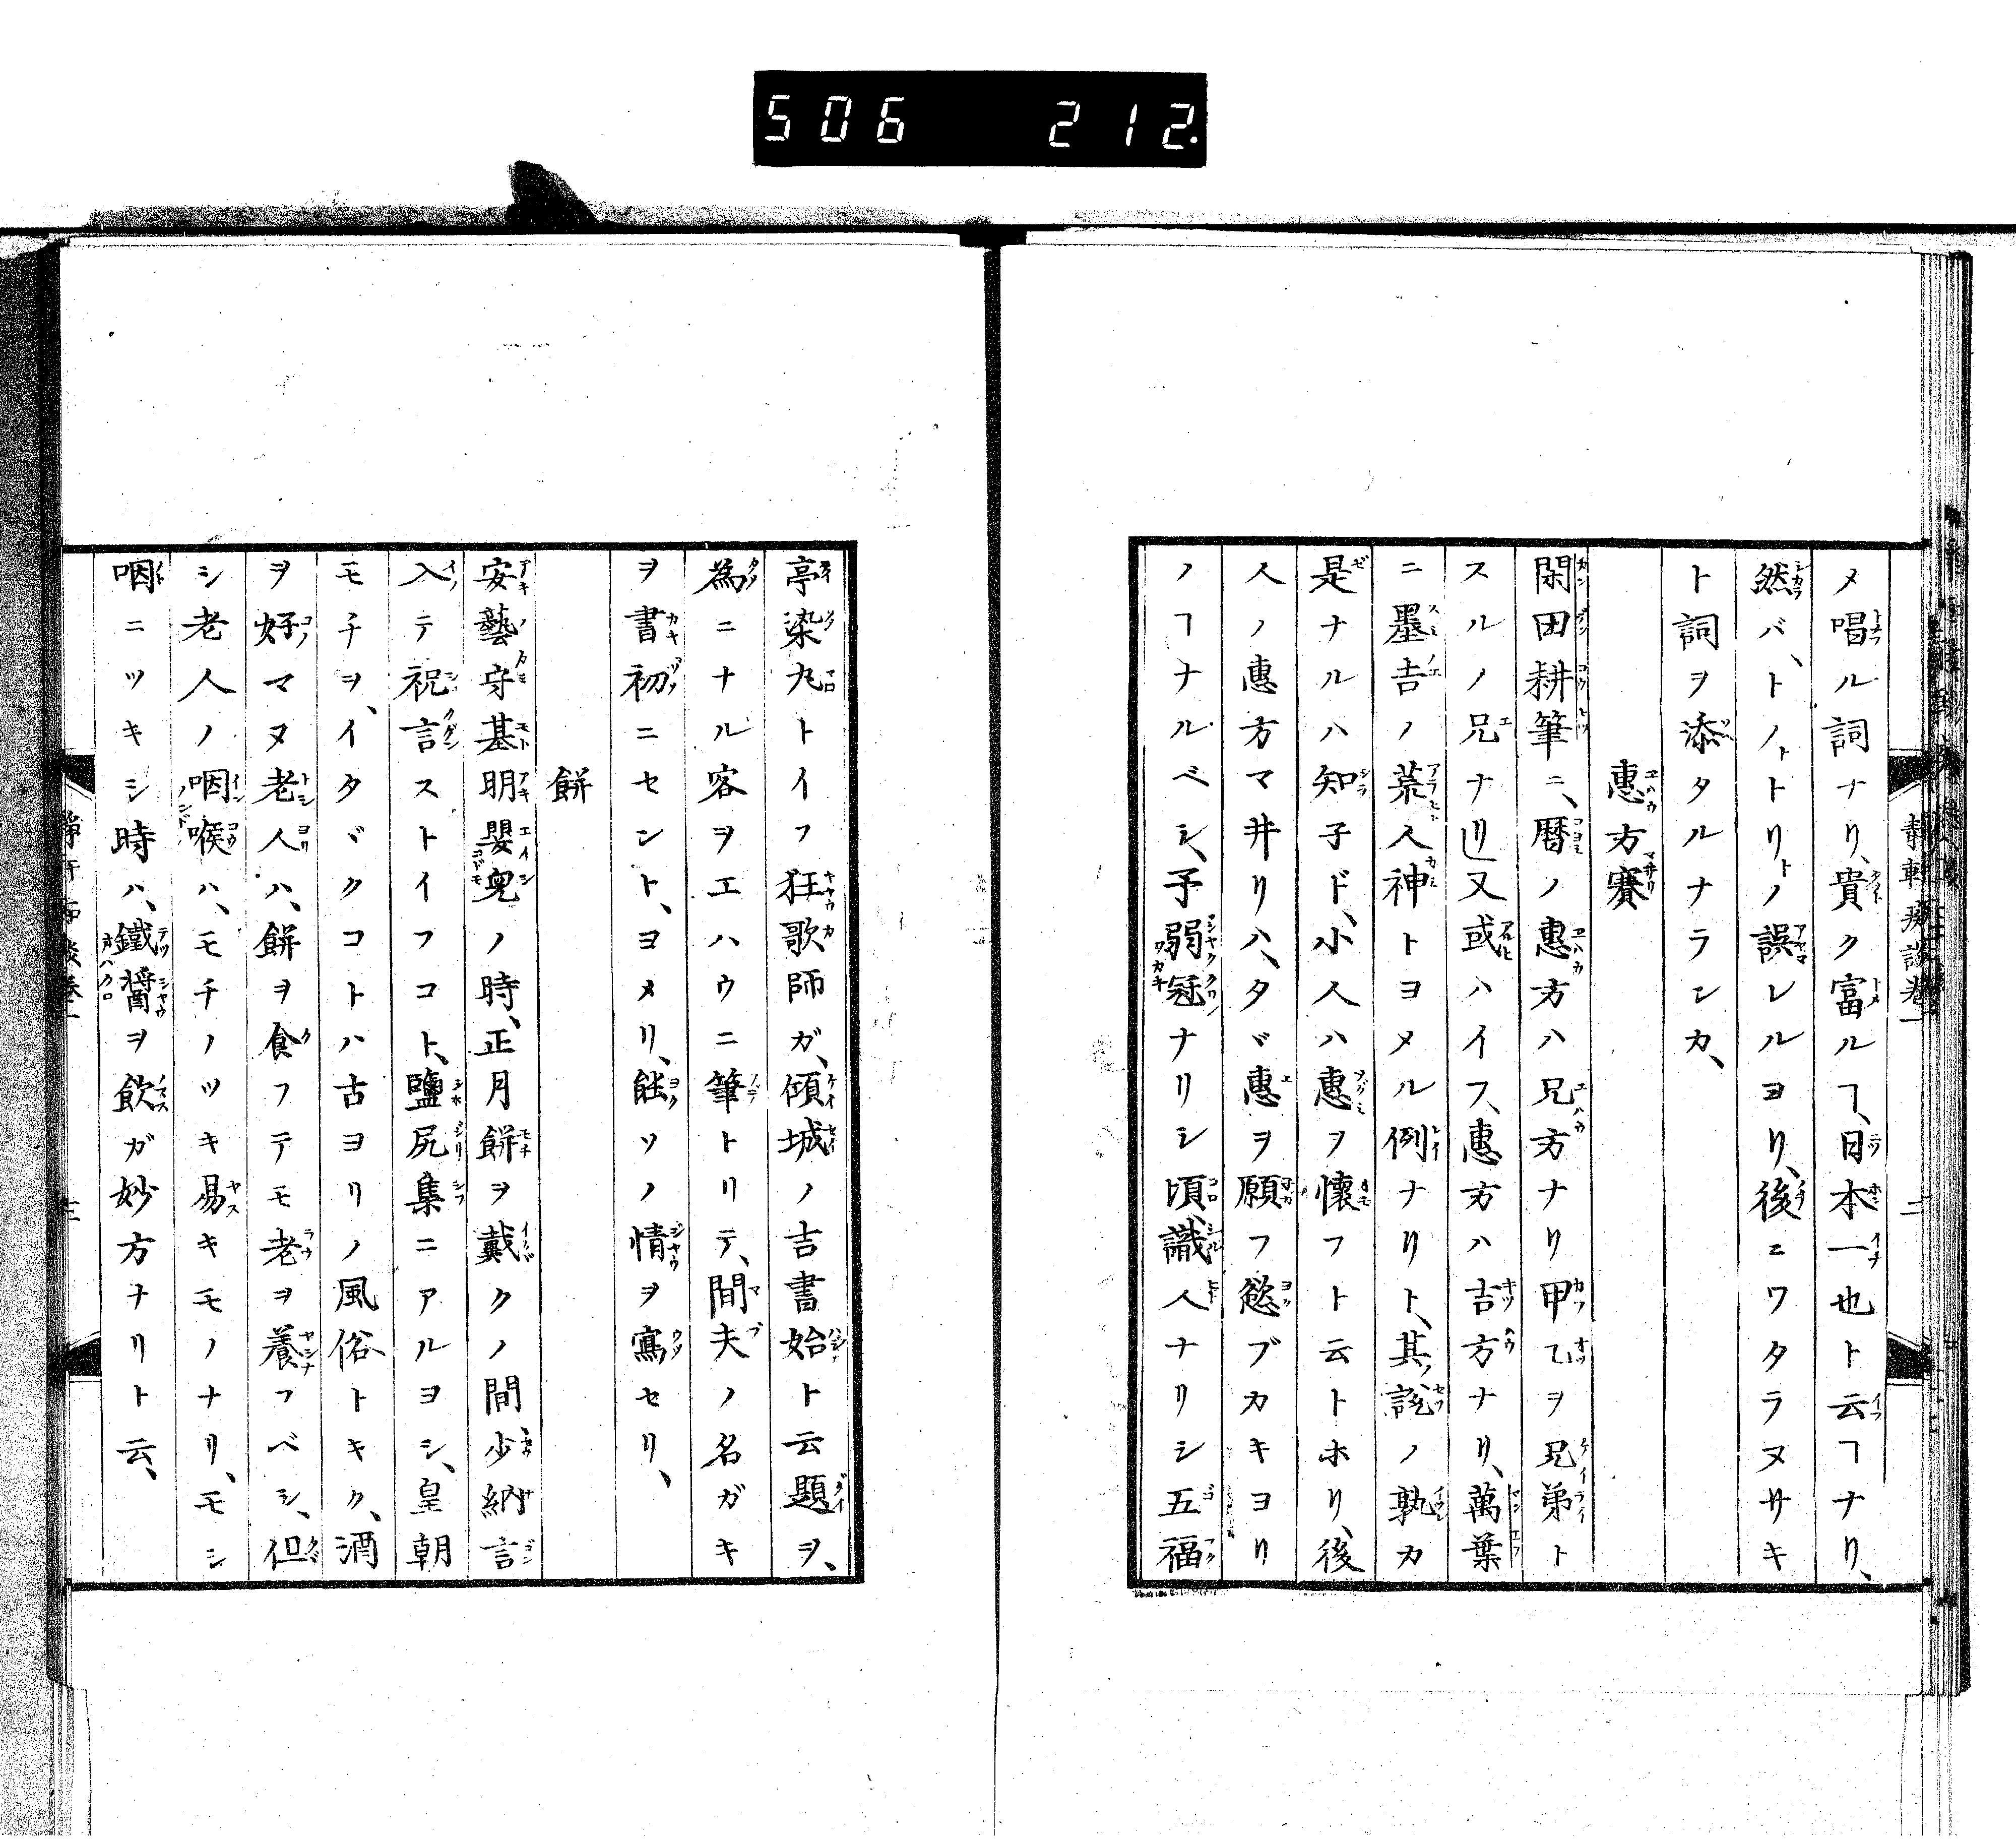 506 212.
メ唱ル詞ナリ、貴ク富ルヿ、日本一也ト云ヿナリ、
然バ、トノトトリトノ誤レルヨリ、後ニワタラヌサキ
ト詞ヲ添タルナランカ、
惠方賽
閑田耕筆ニ、暦ノ惠方ハ兄方ナリ甲乙ヲ兄弟ト
スルノ兄ナリ又或ハイフ、惠方ハ吉方ナリ、萬葉
ニ墨吉ノ荒人神トヨメル例ナリト、其説ノ孰カ
是ナルハ知子ド、小人ハ惠ヲ懷フト云トホリ、後
人ノ惠方マ井リハ、タヾ惠ヲ願フ慾ブカキヨリ
ノヿナルベシ、予弱冠ナリシ頃、識人ナリシ五福
亭染丸トイフ狂歌師ガ、傾城ノ吉書始ト云題ヲ、
為ニナル客ヲエハウニ筆トリテ、間夫ノ名ガキ
ヲ書初ニセント、ヨメリ、能ソノ情ヲ寫セリ、
餅
安藝守基明嬰兒ノ時、正月餅ヲ戴クノ間、少納言
入テ祝言ストイフコト、鹽尻集ニアルヨシ、皇朝
モチヲ、イタヾクコトハ古ヨリノ風俗トキク、酒
ヲ好マヌ老人ハ、餅ヲ食フテモ老ヲ養フベシ、但
シ老人ノ咽喉ハ、モチノツキ易キモノナリ、モシ
咽ニツキシ時ハ、鐵醬ヲ飲ガ妙方ナリト云、